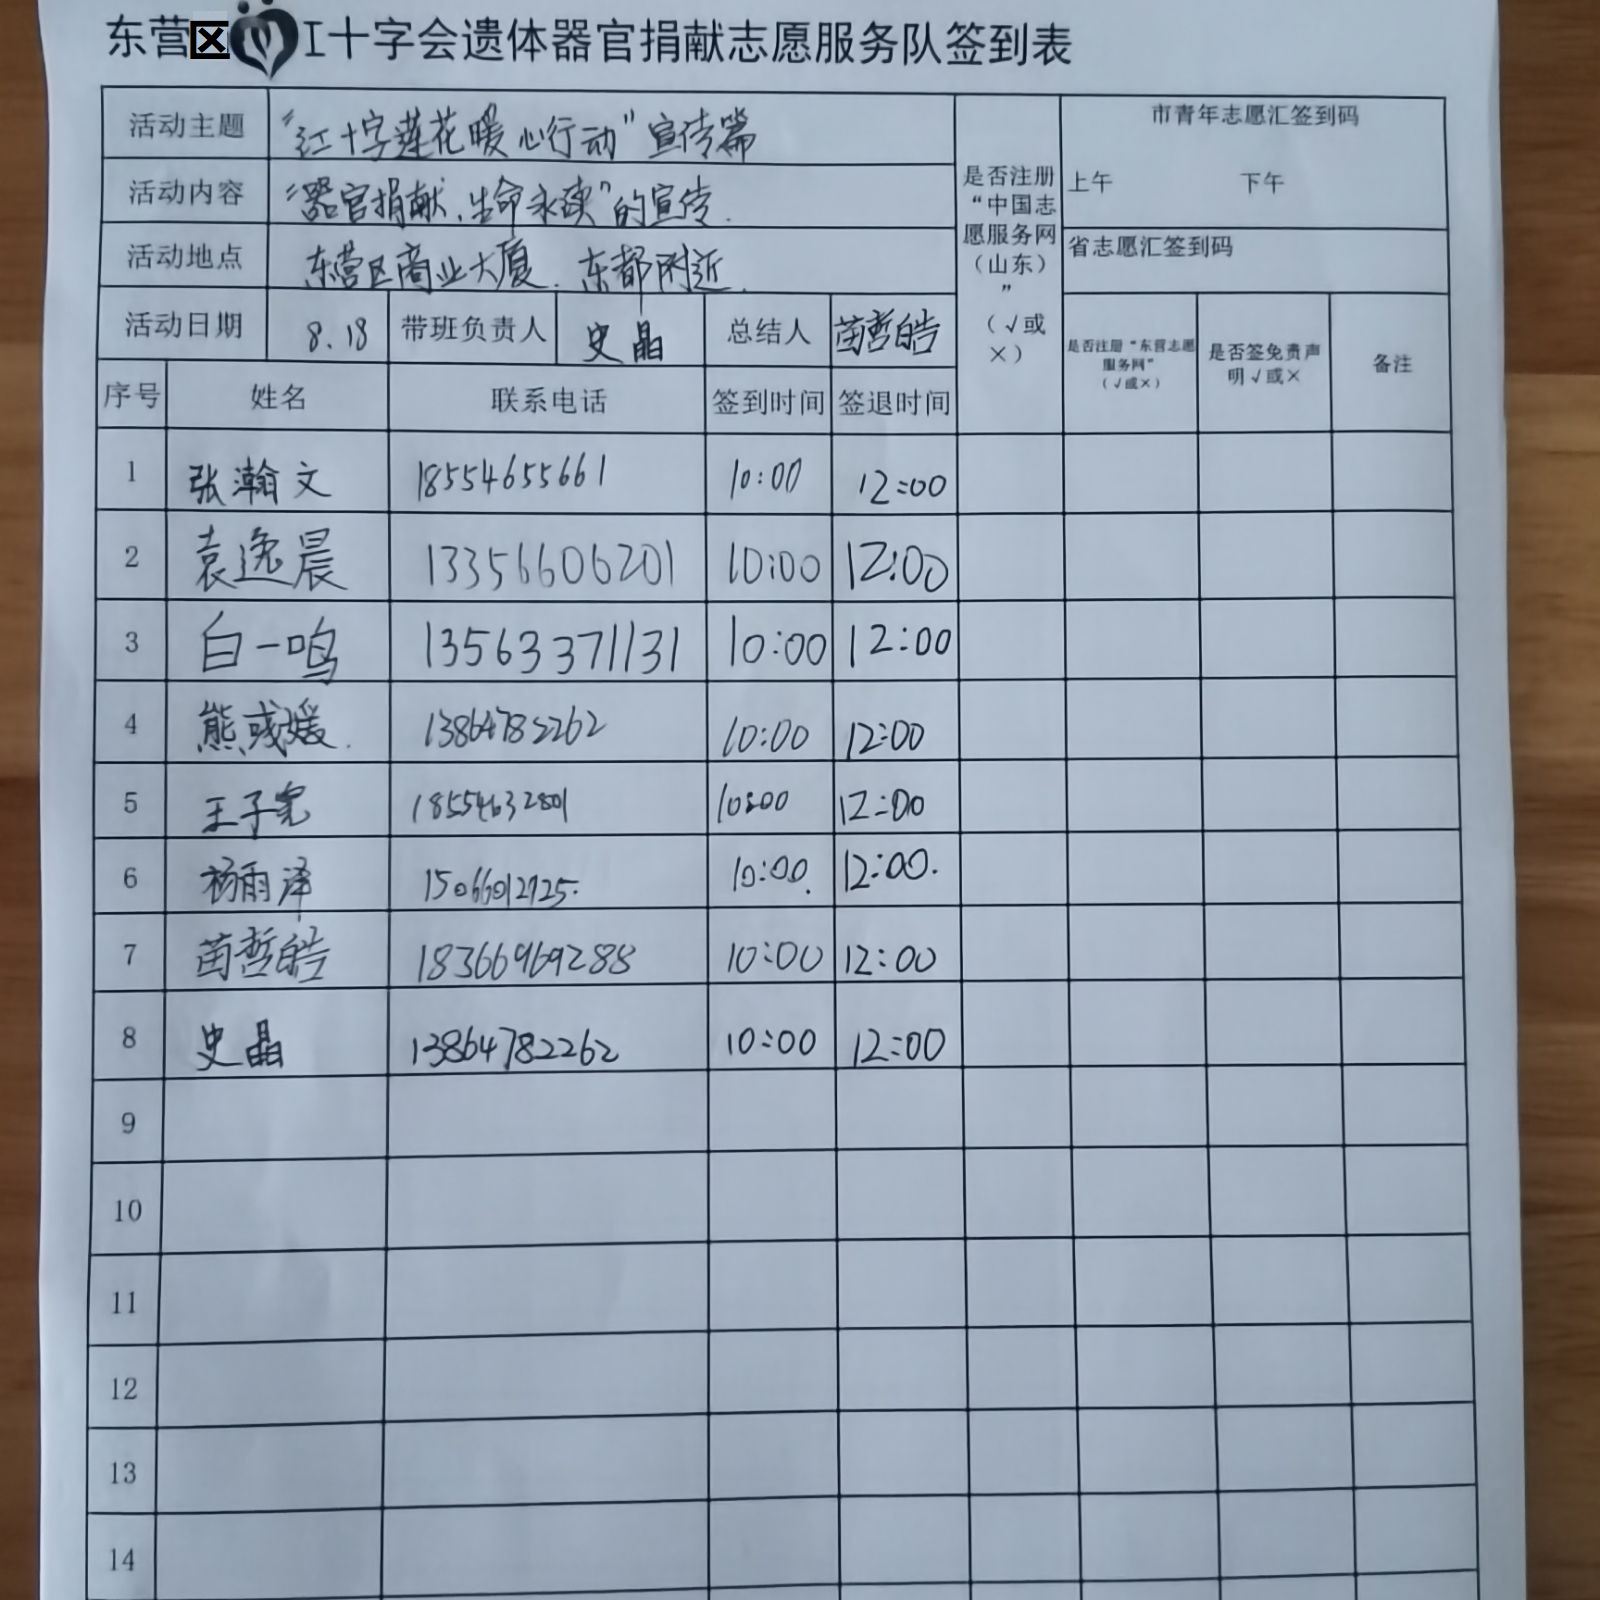 东营区 工十字会遗体器官捐献志愿服务队签到表
活动主题 “红十字莲花暖心行动”宣传篇
市青年志愿汇签到码
上午 下午
活动内容 “器官捐献、生命永续”的宣传.
活动地点 东营区商业大厦、东都附近.
省志愿汇签到码
是否注册
“中国志
愿服务网
（山东）
”
（√或
×）
活动日期 8.18 带班负责人 史晶 总结人 苗哲皓
是否注册“东营志愿
服务网”
（√或×）
是否签免责声
明√或×
备注
序号 姓名 联系电话 签到时间 签退时间
1 张瀚文 18554655661 10:00 12:00
2 袁逸晨 13356606201 10:00 12:00
3 白一鸣 13563371131 10:00 12:00
4 熊彧媛. 13864782262 10:00 12:00
5 王子 18554632801 10:00 12:00
6 杨雨泽 15066012725. 10:00. 12:00.
7 苗哲皓 18366969288 10:00 12:00
8 史晶 13864782262 10:00 12:00
9
10
11
12
13
14